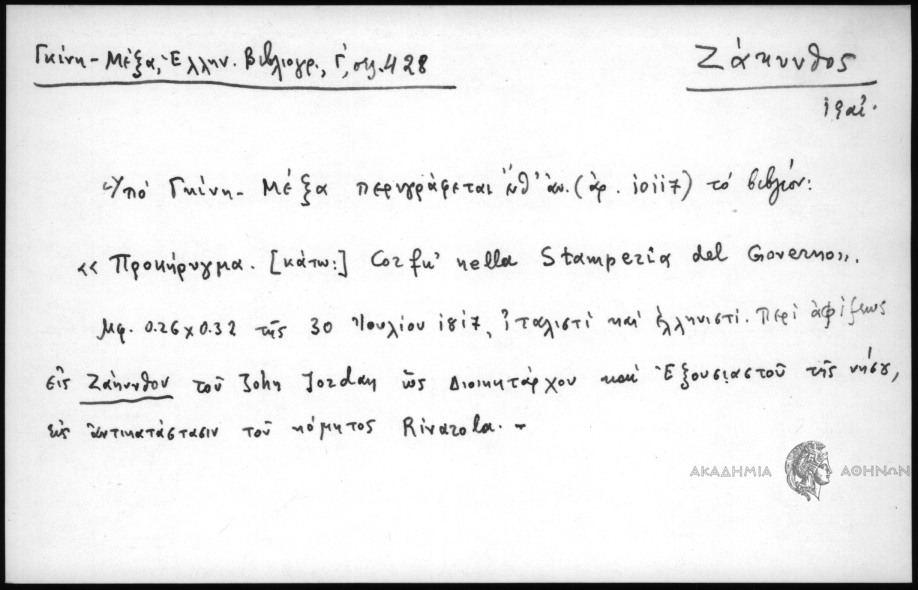 Γκίνη - Μέξα, Ἑλλην. Βιβλιογρ., Γ́, σελ. 428
Ζάκυνθος
ιθ΄ αἰ.
Ὑπὸ Γκίνη - Μέξα περιγράφεται ὑπ' ἀρ. (ἀρ. 10117) τὸ βιβλίον:
«Προκήρυγμα. [κάτω:] Corfu' nella Stamperia del Governo».
Μφ. 0.26 x 0.32 τῆς 30 Ἰουλίου 1817, ἰταλιστὶ καὶ ἑλληνιστί. Περὶ ἀφίξεως
εἰς Ζάκυνθον τοῦ John Jordan ὡς Διοικητάρχου καὶ Ἐξουσιαστοῦ τῆς νήσου,
εἰς ἀντικατάστασιν τοῦ κόμητος Rivarola. -
ΑΚΑΔΗΜΙΑ ΑΘΗΝΩΝ